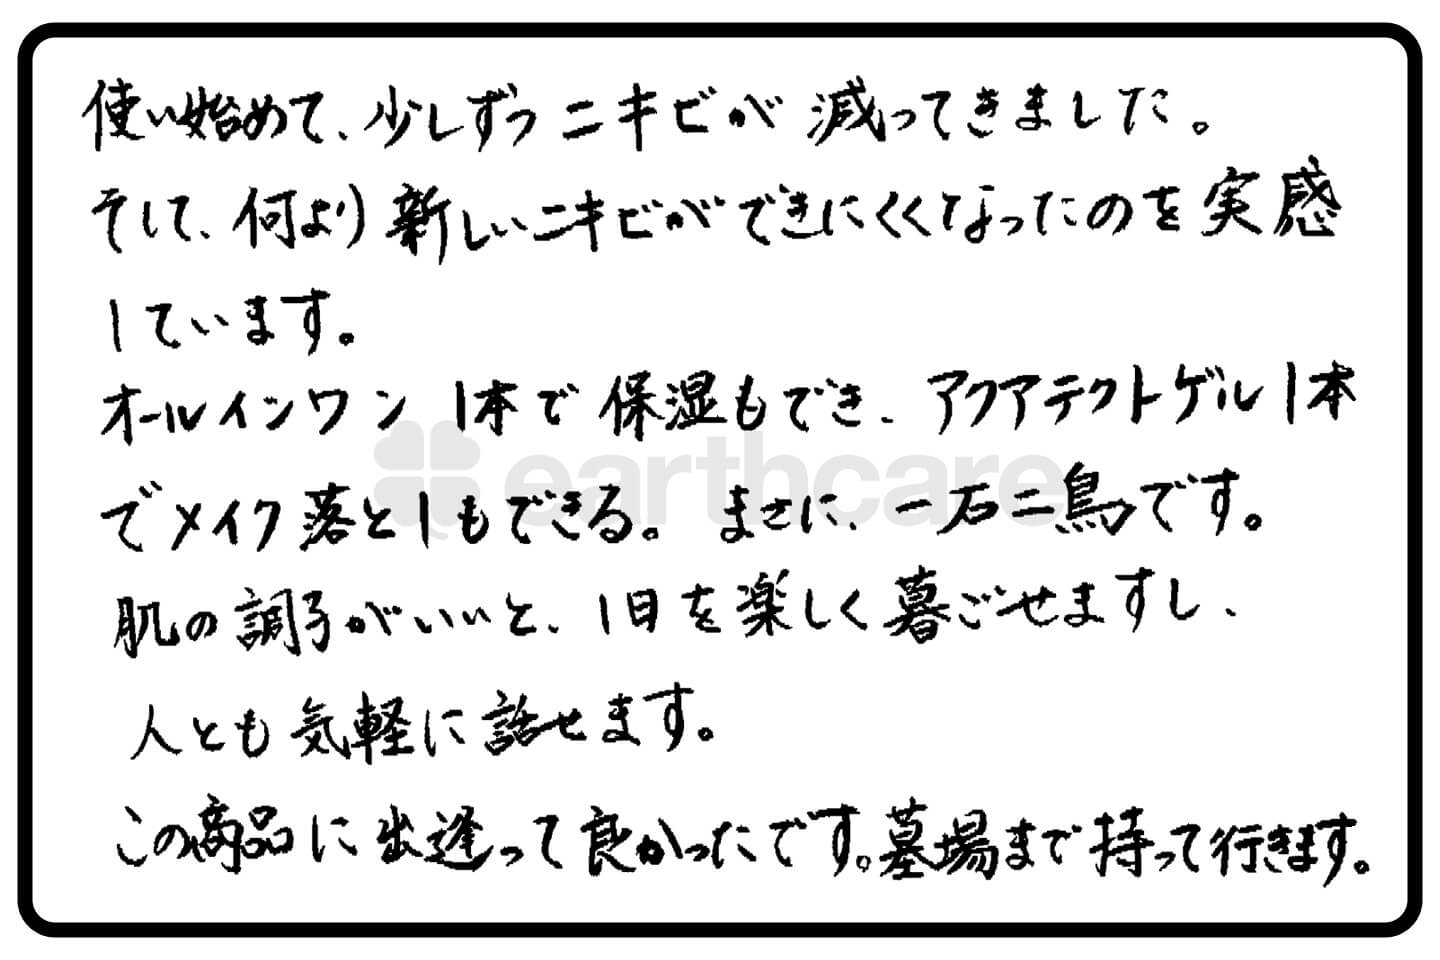 使い始めて、少しずつニキビが減ってきました。
そして、何より新しいニキビができにくくなったのを実感
しています。
オールインワン1本で保湿もでき、アクアテクトゲル1本
でメイク落としもできる。まさに、一石二鳥です。
earthcare
肌の調子がいいと、1日を楽しく暮ごせますし、
人とも気軽に話せます。
この商品に出逢って良かったです。墓場まで持って行きます。